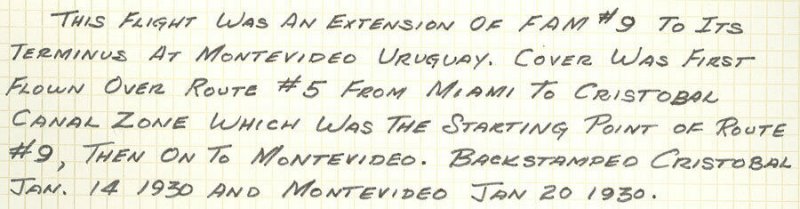 THIS FLIGHT WAS AN EXTENSION OF FAM #9 TO ITS
TERMINUS AT MONTEVIDEO URUGUAY. COVER WAS FIRST
FLOWN OVER ROUTE #5 FROM MIAMI TO CRISTOBAL
CANAL ZONE WHICH WAS THE STARTING POINT OF ROUTE
#9, THEN ON TO MONTEVIDEO. BACKSTAMPED CRISTOBAL
JAN. 14 1930 AND MONTEVIDEO JAN 20 1930.